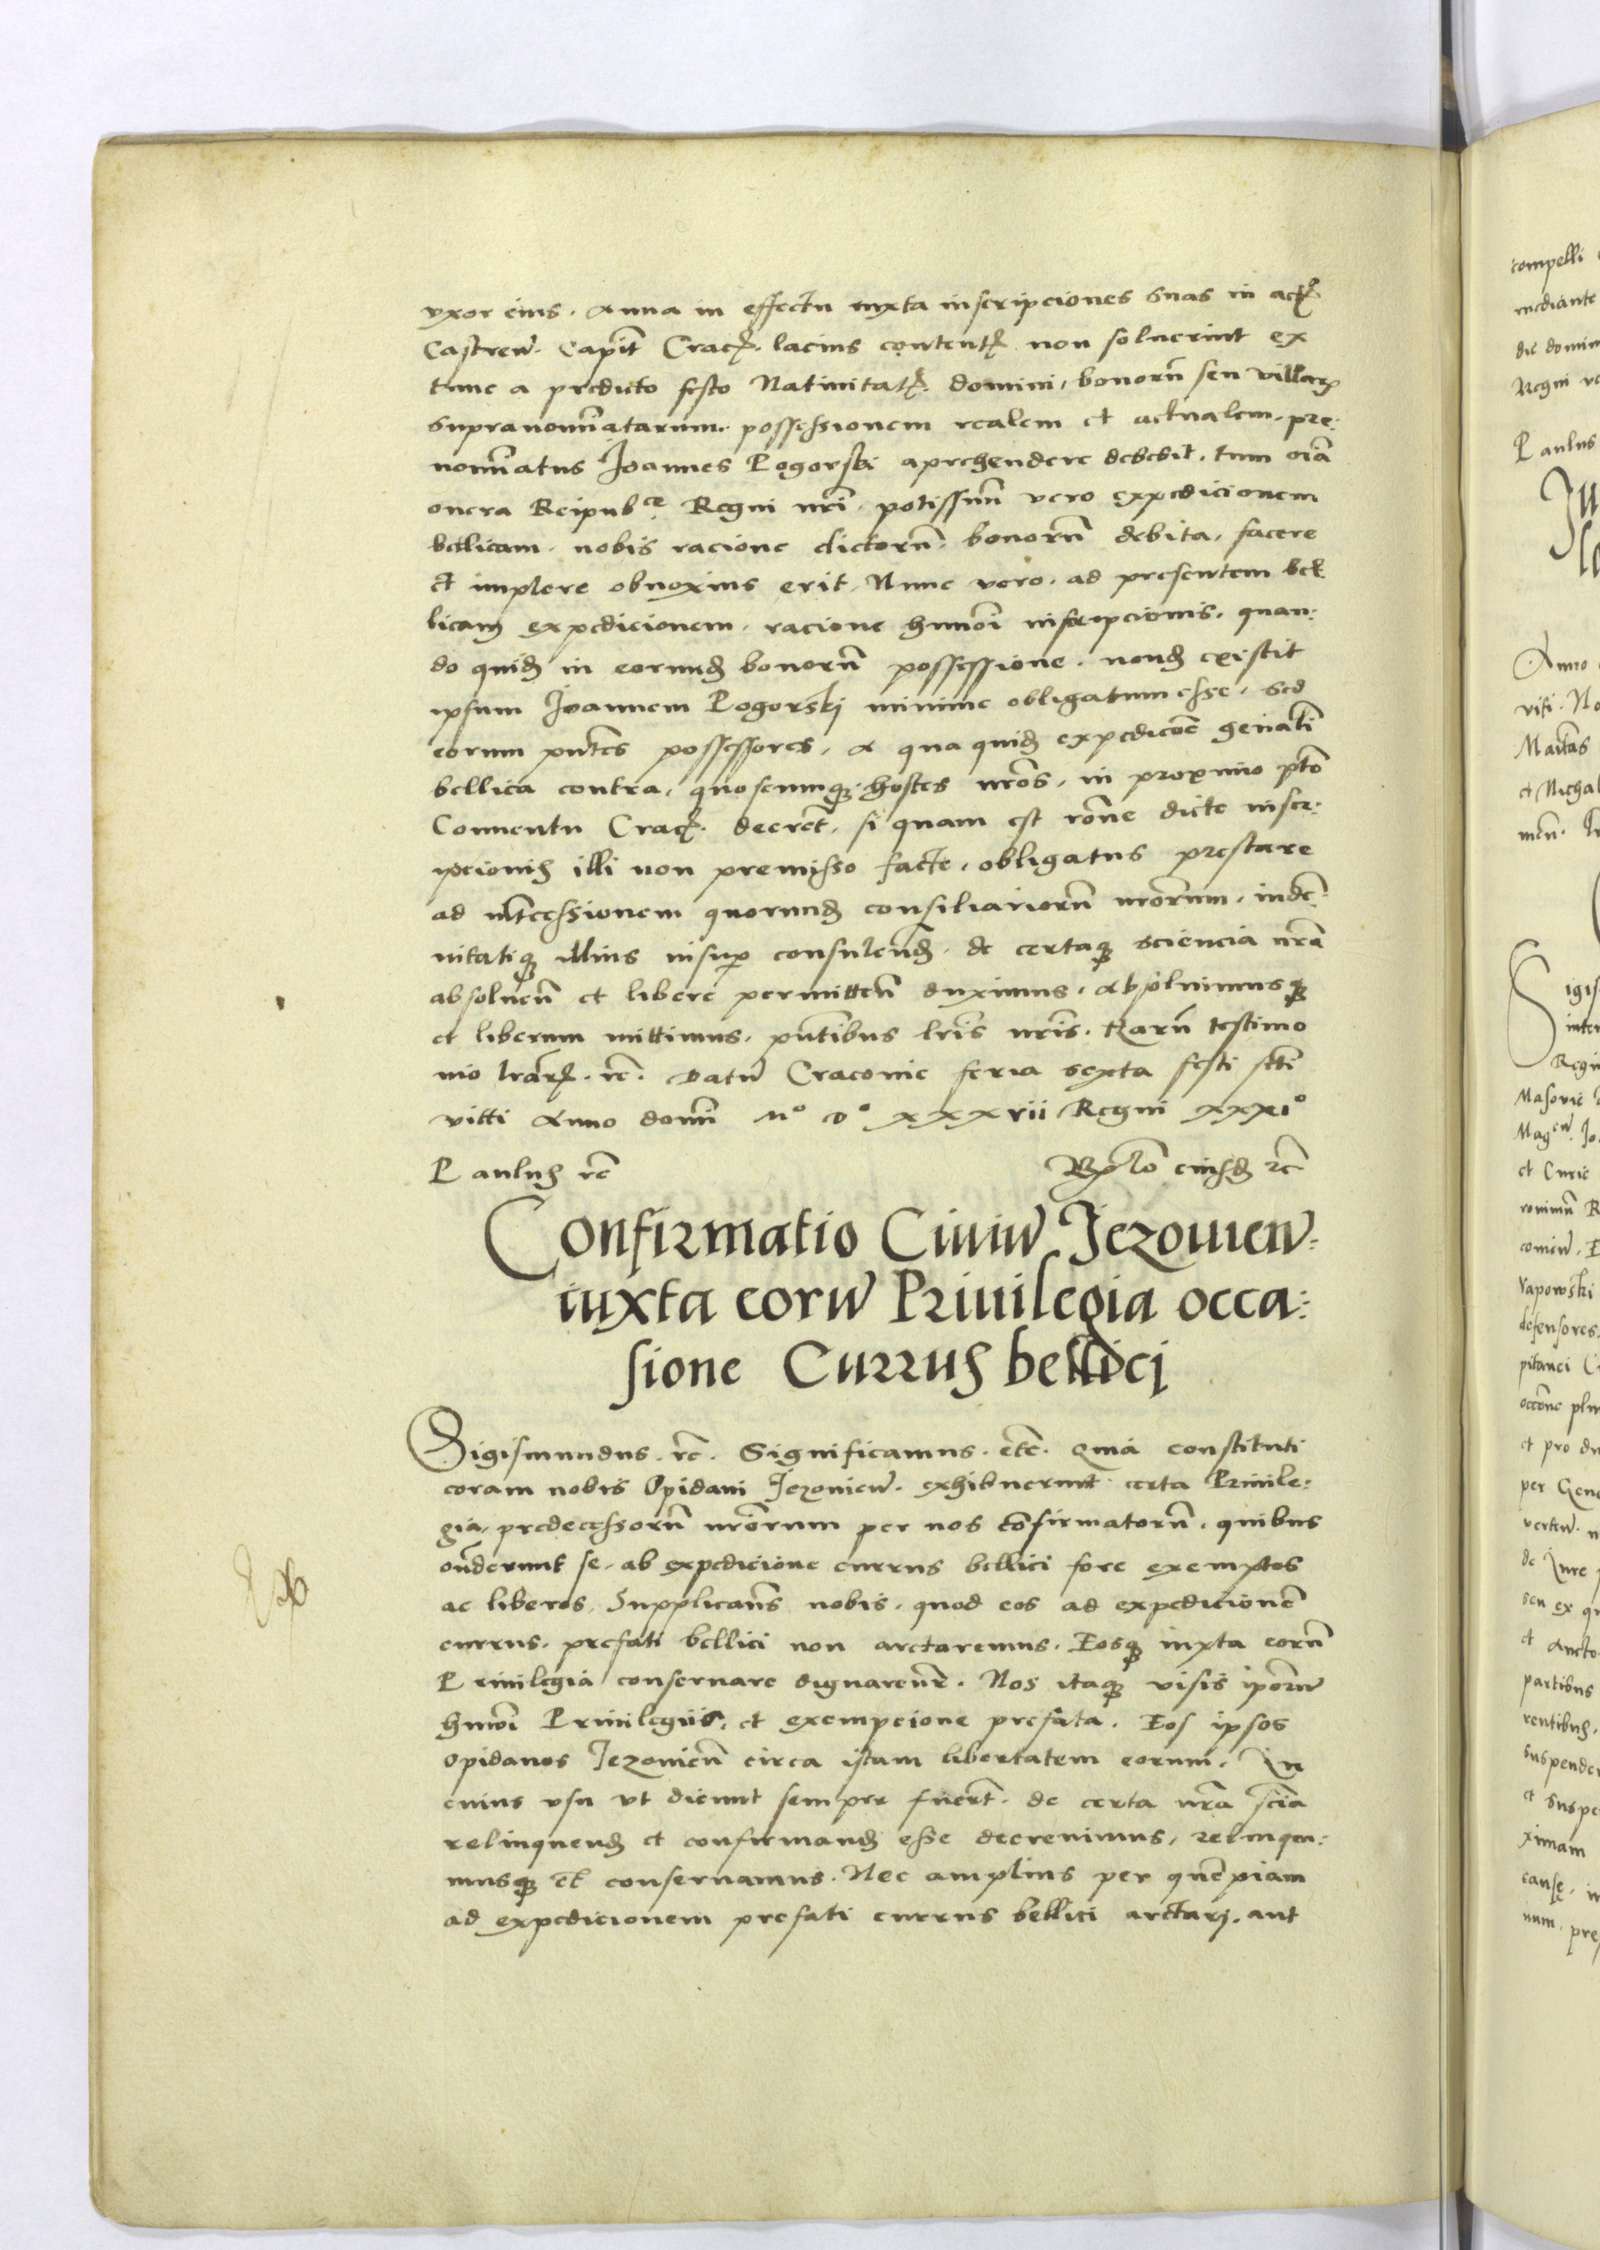 vxor eius. Anna in effectu iuxta inscripciones suas in actꝭ
Castreñ. Capit̃ Cracꝭ. lacius contentꝭ non soluerint ex
tunc a predicto festo Natiuitatꝭ. domini, bonorũ seu villarꝝ
supranoĩatarum. possessionem realem et actualem. pre:
noĩatus Joannes Pogorski aprehendere debebit. tum oĩa
onera Reipubce Regni nr̃i, potissimũ vero expedicionem
bellicam. nobis racione dictorũ. bonorũ debita, facere
et implere obnoxius erit. Nunc vero. ad presentem bel
licam expedicionem. racione hmõi inscripcionis. quan:
do quidẽ in eorundẽ bonorũ possessione. nondũ existit
ipsum Joannem Pogorskj minime obligatum esse, sed
eorum pñtes possessores, A qua quidẽ expedicõe geñati
bellica contra, quoscumqꝫ hostes nr̃os, in proximo pt̃o
Conuentu Cracꝭ. decret̃, si quam est rõne dicte inscr:
ipcionis illi non premisso facte, obligatus prestare
ad intcessionem quorundã consiliariorũ nr̃orum, indẽ
nitatiqꝫ illius insuꝑ consulendo. de certaqꝫ sciencia nr̃a
absoluen̄ et libere permitten̄ duximus, absoluimusqꝫ
et liberum mittimus. pñtibus lr̃is nr̃is. Harũ testimo
nio lr̃arꝝ. rc̃. Datũ Cracouie feria sexta festi sc̃ti
vitti Anno domĩ Mo Do xxxvii Regni xxxio
Paulus rc̃ Rꝑlo eiusdẽ rc̃
Confirmatio Ciuiũ Jezouieñ:
iuxta eorũ Priuilegia occa:
sione Currus bellici
Sigismundus. rc̃. Significamus. etc̃. Quia constituti
coram nobis Opidani Jezouieñ. exhibuerunt certa Priuile:
gia, predecessorũ nr̃orum per nos cõfirmatorũ, quibus
oñderunt se, ab expedicione currus bellici fore exemptos
ac liberos, Supplicanẽs nobis, quod eos ad expedicionẽ
currus. prefati bellici non arctaremus. Eosqꝫ iuxta eorũ
Priuilegia conseruare dignaremr̃. Nos itaqꝫ visis ipõrũ
hmõi Priuilegiis, et exempcione prefata. Eos ipsos
Opidanos Jezouieñ circa istam libertatem eorum. In
cuius vsu vt dicunt semper fuer̃t. de certa nr̃a sc̃ia
relinquendũ et confirmandũ esse decreuimus, relinqui:
musqꝫ et conseruamus. Nec amplius per quẽpiam
ad expedicionem prefati currus bellici arctarj. aut
compelli
mediante
die domin
Regni
Paulus
Ju
Anno
viti. No
Mait̃as
et Michal
Sigis
inter
Regi
Masovie
et Curie
Vapowski
defensores
pitanei
occõne
et pro
per Gene
de Jure
seu ex
et aucto
partibus
suspende
et suspe
ximam
cause
num. pre